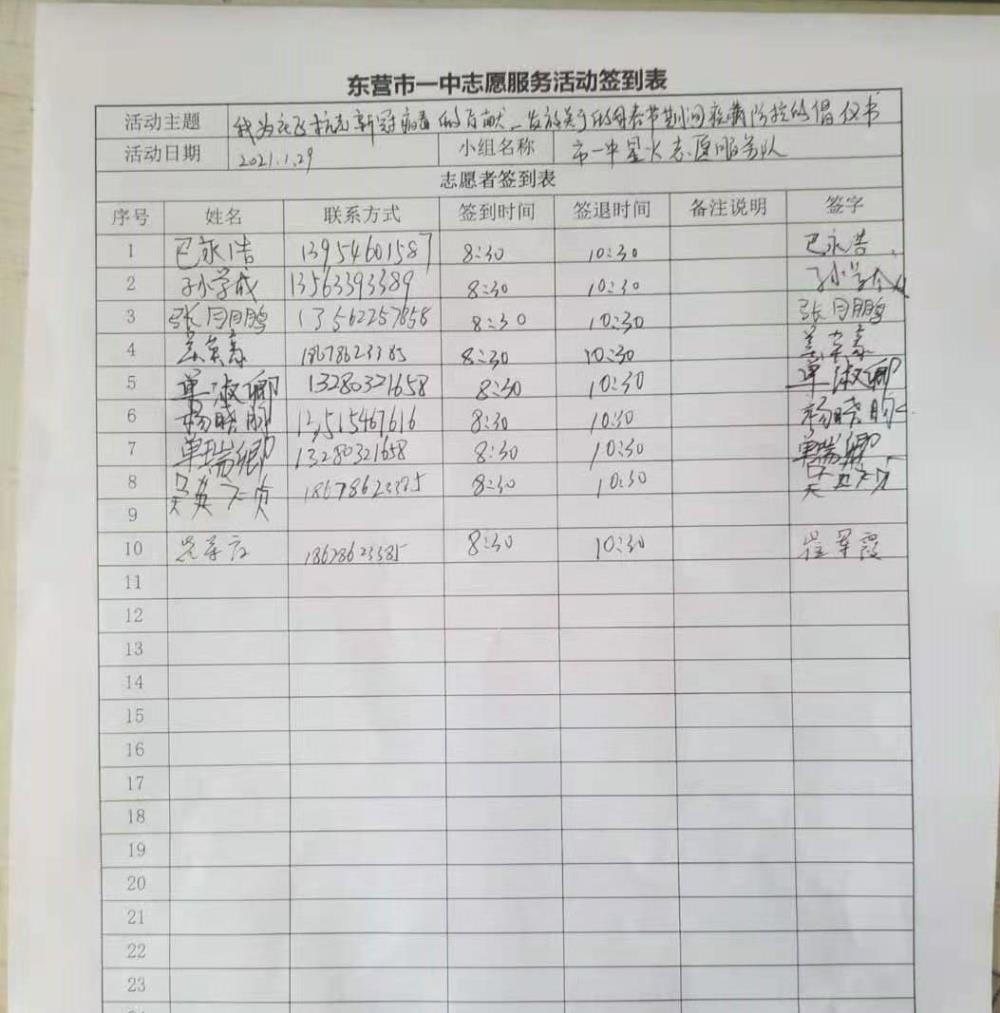 东营市一中志愿服务活动签到表
活动主题 我为 抗击新冠病毒 发放关于 春节期间疫情防控的倡仪书
活动日期 2021.1.29 小组名称 市一中星火志愿服务队
志愿者签到表
序号 姓名 联系方式 签到时间 签退时间 备注说明 签字
1 巴永浩 13954601587 8:30 10:30 巴永浩
2 孙学成 13563393389 8:30 10:30 孙学
3 张月鹏 13562257858 8:30 10:30 张月鹏
4 8:30 10:30
5 单淑卿 13280321658 8:30 10:30 单淑卿
6 杨晓 13515467616 8:30 10:30 杨晓
7 单瑞卿 13280321658 8:30 10:30 单瑞卿
8 吴 8:30 10:30 吴
9
10 18678623385 8:30 10:30 崔军霞
11
12
13
14
15
16
17
18
19
20
21
22
23